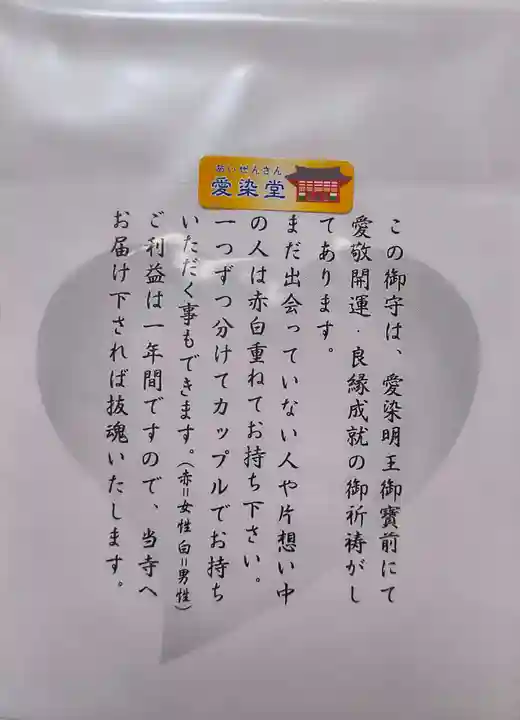 あいぜんさん
愛染堂
この御守は、愛染明王御寳前にて
愛敬開運・良縁成就の御祈祷がし
てあります。
まだ出会っていない人や片想い中
の人は赤白重ねてお持ち下さい。
一つずつ分けてカップルでお持ち
いただく事もできます。(赤=女性 白=男性)
ご利益は一年間ですので、当寺へ
お届け下されば抜魂いたします。